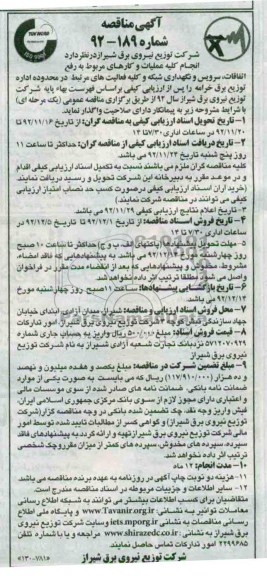 آگهی مناقصه
شماره ۱۸۹-۹۲
شرکت توزیع نیروی برق شیراز در نظر دارد
انجام کلیه عملیات و کارهای مربوط به رفع
اتفاقات، سرویس و نگهداری شبکه و کلیه فعالیت های مرتبط در محدوده اداره
توزیع برق خرامه را پس از ارزیابی کیفی براساس فهرست بهاء پایه شرکت
توزیع نیروی برق شیراز سال ۹۲ از طریق برگزاری مناقصه عمومی (یک مرحله ای)
با شرایط مشروحه زیر به پیمانکار دارای صلاحیت واگذار نماید.
۱- تاریخ تحویل اسناد ارزیابی کیفی به مناقصه گران: از تاریخ ۹۲/۱۱/۱۶ تا
۹۲/۱۱/۲۰ در ساعات اداری ۷/۳۰ تا ۱۴
۲- تاریخ دریافت اسناد ارزیابی کیفی از مناقصه گران: حداکثر تا ساعت ۱۱
روز پنج شنبه تاریخ ۹۲/۱۱/۲۴ می باشد.
کلیه مناقصه گران ملزم می باشند نسبت به تکمیل اسناد ارزیابی کیفی اقدام
و در موعد مقرر به دبیرخانه این شرکت تحویل و رسید دریافت نمایند.
(خریداران اسناد ارزیابی کیفی درصورت کسب حد نصاب امتیاز ارزیابی
کیفی می توانند در مناقصه شرکت نمایند)
۳- تاریخ اعلام نتایج ارزیابی کیفی ۹۲/۱۱/۲۹ می باشد.
۴- تاریخ فروش اسناد مناقصه: از تاریخ ۹۲/۱۲/۱ تا تاریخ ۹۲/۱۲/۵ در
ساعات اداری ۷/۳۰ تا ۱۴
۵- مهلت تحویل پیشنهادها (پاکتهای الف، ب و ج) حداکثر تا ساعت ۱۰ صبح
روز چهارشنبه مورخ ۹۲/۱۲/۱۴ می باشد. به پیشنهادهایی که فاقد امضاء،
مشروط، مخدوش و پیشنهادهایی که بعد از انقضاء مدت مقرر در فراخوان
واصل می شود مطلقا ترتیب اثر داده نخواهد شد.
۶- تاریخ بازگشایی پیشنهادها: ساعت ۱۱ صبح روز چهارشنبه مورخ
۹۲/۱۲/۱۴ می باشد.
۷- محل فروش اسناد ارزیابی و مناقصه: شیراز میدان آزادی ابتدای خیابان
جهاد سازندگی نبش کوچه ۲ شرکت توزیع نیروی برق شیراز، امور تدارکات
۸- قیمت فروش اسناد: مبلغ ریال واریز به حساب جاری شماره
۵۷۱۲۰۷۰۹۲۹ نزد بانک تجارت شعبه آزادی شیراز به نام شرکت توزیع
نیروی برق شیراز
۹- مبلغ تضمین شرکت در مناقصه: مبلغ یکصد و هفده میلیون و نهصد
و ده هزار (۱۱۷/۹۱۰/۰۰۰) ریال که می بایست به صورت یکی از موارد
ضمانت نامه بانکی، ضمانت نامه های صادر شده از سوی موسسات مالی
و اعتباری دارای مجوز لازم از سوی بانک مرکزی جمهوری اسلامی ایران،
فیش واریز وجه نقد، چک تضمین شده بانکی در وجه مناقصه گزار (شرکت
توزیع نیروی برق شیراز) و گواهی کسر از مطالبات تایید شده توسط امور
مالی شرکت توزیع نیروی برق شیراز تهیه و ارائه گردد به پیشنهادهای فاقد
سپرده، سپرده های مخدوش، سپرده های کمتر از میزان مقرر و چک شخصی
ترتیب اثر داده نخواهد شد.
۱۰- مدت انجام: ۱۲ ماه
۱۱- هزینه دو نوبت چاپ آگهی در روزنامه به عهده برنده مناقصه می باشد.
۱۲- سایر اطلاعات و جزئیات مربوطه در اسناد مناقصه مندرج است.
متقاضیان برای کسب اطلاعات بیشتر می توانند به شبکه اطلاع رسانی
معاملات توانیر به نشانی: www.Tavanir.org.ir و پایگاه ملی اطلاع
رسانی مناقصات به نشانی iets.mporg.ir وسایت شرکت توزیع نیروی
برق شیراز به نشانی: www.shirazedc.co.ir مراجعه و یا با شماره تلفن
۲۲۹۹۶۸۵ امور تدارکات تماس حاصل نمایند.
شرکت توزیع نیروی برق شیراز